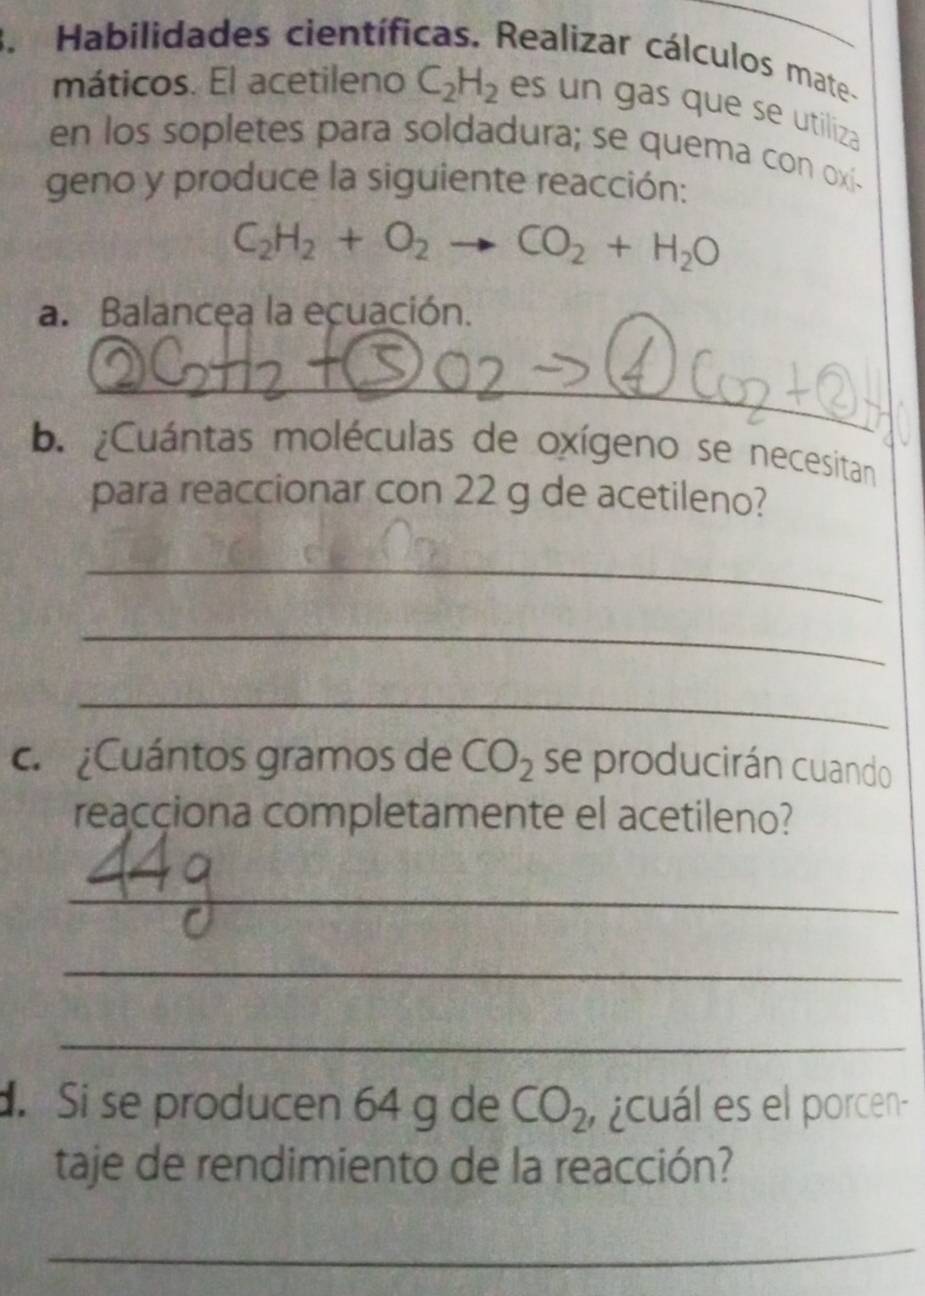 3. Habilidades científicas. Realizar cálculos mate-
máticos. El acetileno C₂H₂ es un gas que se utiliza
en los sopletes para soldadura; se quema con oxí-
geno y produce la siguiente reacción:
C₂H₂ + O₂ → CO₂ + H₂O
a. Balancea la ecuación.
②C₂H₂ + ⑤O₂ → ④CO₂ + ②H₂O
b. ¿Cuántas moléculas de oxígeno se necesitan
para reaccionar con 22 g de acetileno?
de O₂
c. ¿Cuántos gramos de CO₂ se producirán cuando
reacciona completamente el acetileno?
44g
d. Si se producen 64 g de CO₂, ¿cuál es el porcen-
taje de rendimiento de la reacción?